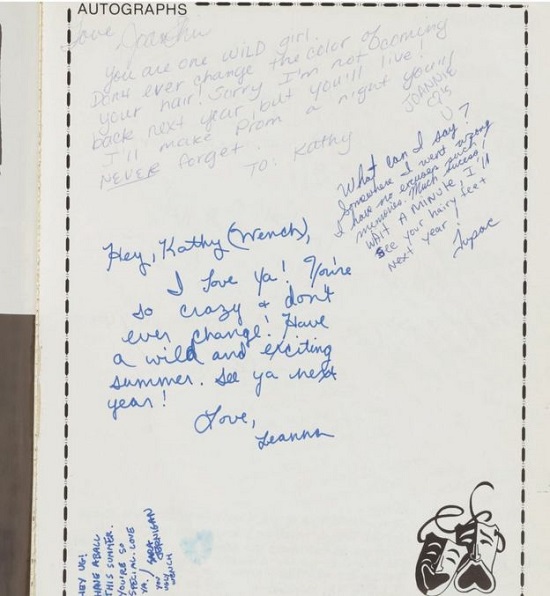 AUTOGRAPHS
Love
You are one wild girl.
Don't ever change the color of
your hair! Sorry I'm not coming
back next year, but you'll live!
I'll make Prom a night you'll
NEVER forget.
JOANNIE
TO: Kathy
What can I say?
Somewhere I went wrong
I have no excuses such
memories. Much success!
WAIT A MINUTE, I'll
see your hairy feet
next year!
Tupac
Hey, Kathy (Wench),
I love ya! You're
so crazy & don't
ever change! Have
a wild and exciting
summer. See ya next
year!
Love,
Leanna
HEY UG!
HANG A BALL
THIS SUMMER.
YOU'RE SO
SPECIAL. LOVE
YA!
SARA
JERNIGAN
YOU
UGLY
WENCH